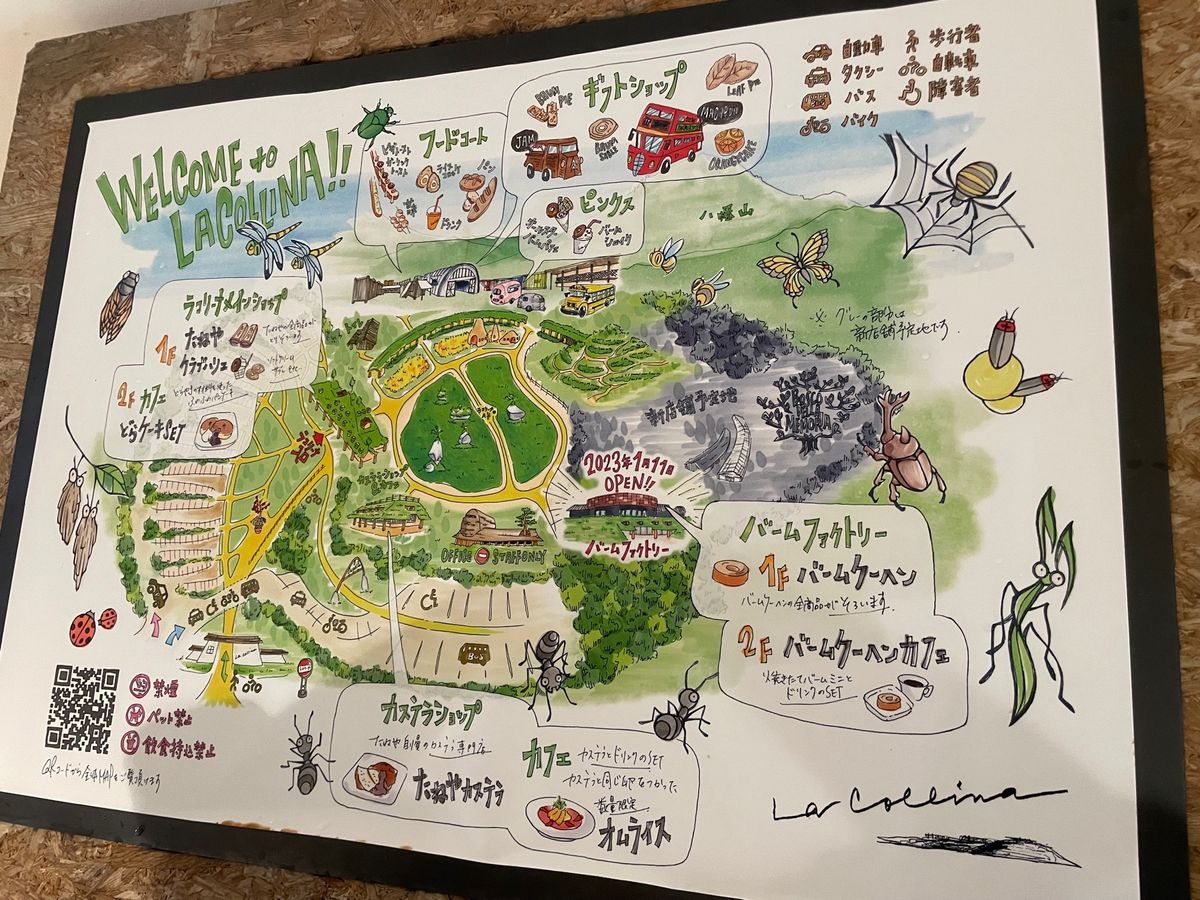 WELCOME to
LA COLLINA!!
フードコート
ピザトースト
ガーリック
トースト
パン
ドリンク
ギフトショップ
BAUM
PIE
LEAF PIE
JAM
BAUM
SABLE
ORANGECAKE
ピンクス
バーム
シェイク
自動車
タクシー
バス
バイク
歩行者
自転車
障害者
八幡山
※グレーの部分は
新店舗予定地です。
ラコリーナメインショップ
1F
たねや
クラブハリエ
2F カフェ
どらケーキSET
新店舗予定地
2023年1月11日
OPEN!!
バームファクトリー
OFFICE STAFF ONLY
BUS
バームファクトリー
1F バームクーヘン
バームクーヘンの全商品がそろいます。
2F バームクーヘンカフェ
焼きたてバームミニと
ドリンクのSET
禁煙
ペット禁止
飲食持込禁止
QRコードから全体MAPをご覧頂けます
カステラショップ
たねや自慢のカステラ専門店
たねやカステラ
カフェ
カステラとドリンクのSET
カステラと同じ卵をつかった
数量限定
オムライス
La Collina